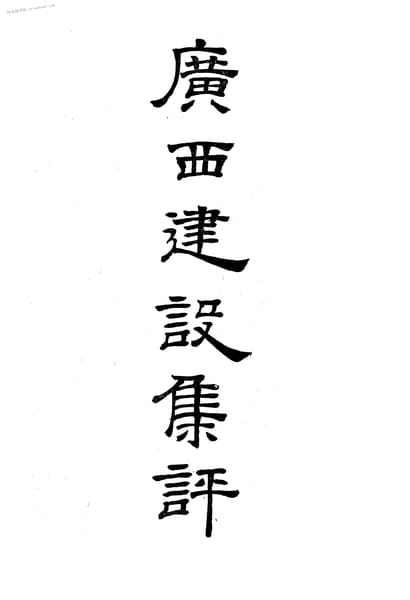 廣西建設集評